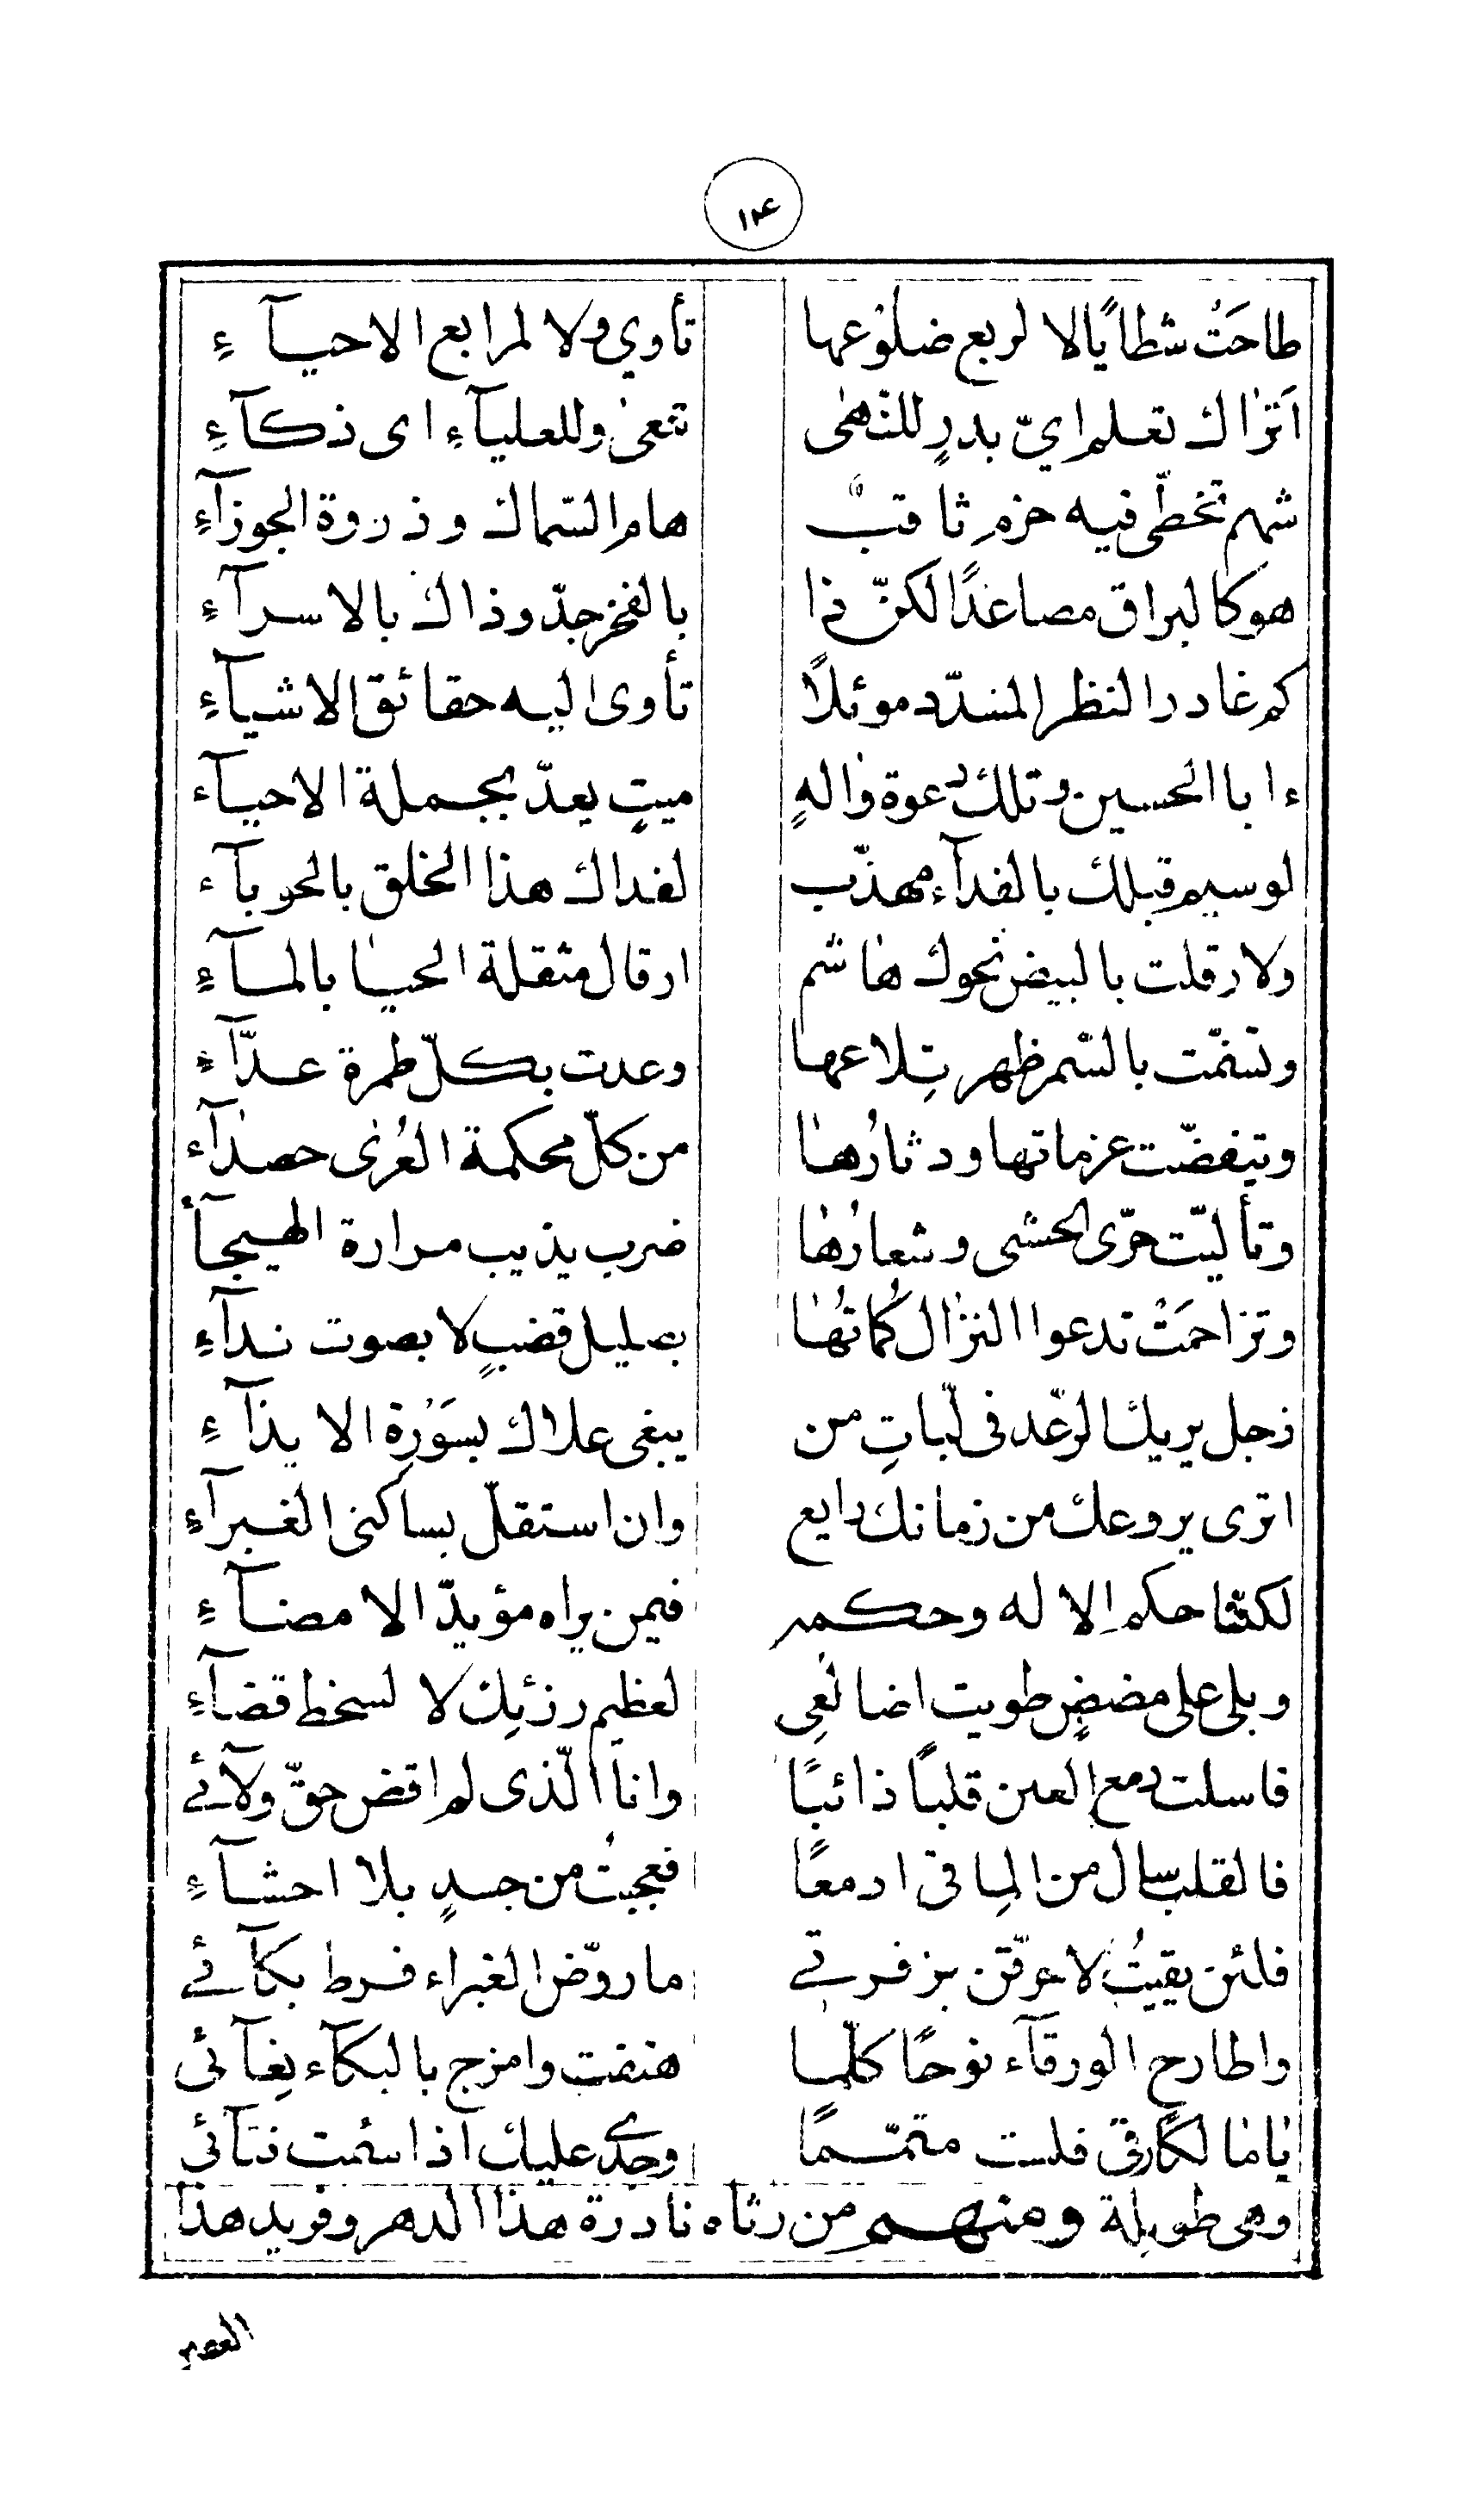 ١٤
طاحَتْ شطايًا لا لربع ضلوُعها تأوي ولا لمرابع الاحيآءِ
اَتراك تعلم ايّ بدرٍ للنهى تنعى وللعليآءِ اى ذكآءِ
شهم تخطّى فيه حزم ثاقبٌ هام السّماك وذروة الجوزآءِ
هو كالبراق مصاعدًا لكنّ ذا بالفخر جدّ وذاك بالاسرآءِ
كم غادر النظر المسدّد موئلاً تأوى اليه حقائق الاشيآءِ
ءابا الحسين وتلك دعوة والهٍ ميتٍ يعدّ بجملة الاحيآء
لو سيم قبلك بالفدآء مهذّب لفداك هذا الخلق بالحوبآء
ولارقلت بالبيض نحوك هاشم ارقال مثقلة الحيا بالمآءِ
وتسنمّت بالسّمر ظهر تِلاعها وعدت بكلّ طمرة عدّآءِ
وتيفضّت عزماتها ودثارُها من كلّ محكمة العُرى حصدآء
وتألبّت حرّى الحشى وشعارُها ضرب يذيب مرارة الهيجآء
وتزاحمَتْ تدعوا النزال كُماتُها بصليل قضبٍ لا بصوت ندآءِ
زجل يريك الرّعد فى لبّاتِ من يبغى علاك بسَوْرة الايذآءِ
اترى يروعك من زمانك رايع وان استقلّ بساكنى الغبرآءِ
لكنّما حكم الاله وحكمه فيمن يراه مؤيدّ الامضآءِ
وبلى على مضضٍ طويت اضالعِى لعظيم رزئِك لا لسخط قضآءِ
فاسلت دمع العين قلباً ذائبًا وانا الّذى لم اقض حقّ ولآئے
فالقلب سال من الماقى ادمعًا فعجبتُ من جسدٍ بلا احشآءِ
فلئن بقيتُ لاحرقن بزفرتے ما روّض الغبراء فرط بكآئے
واطارح الورقآء نوحًا كلّما هتفت وامزج بالبكآء غِنآئى
يا مالكًا رقى فلست متمّمًا وجدى عليك اذا سئمت ثنآئى
وهى طويلة ومنهم من رثاه نادرة هذا الدهر وفريد هذا
العصر